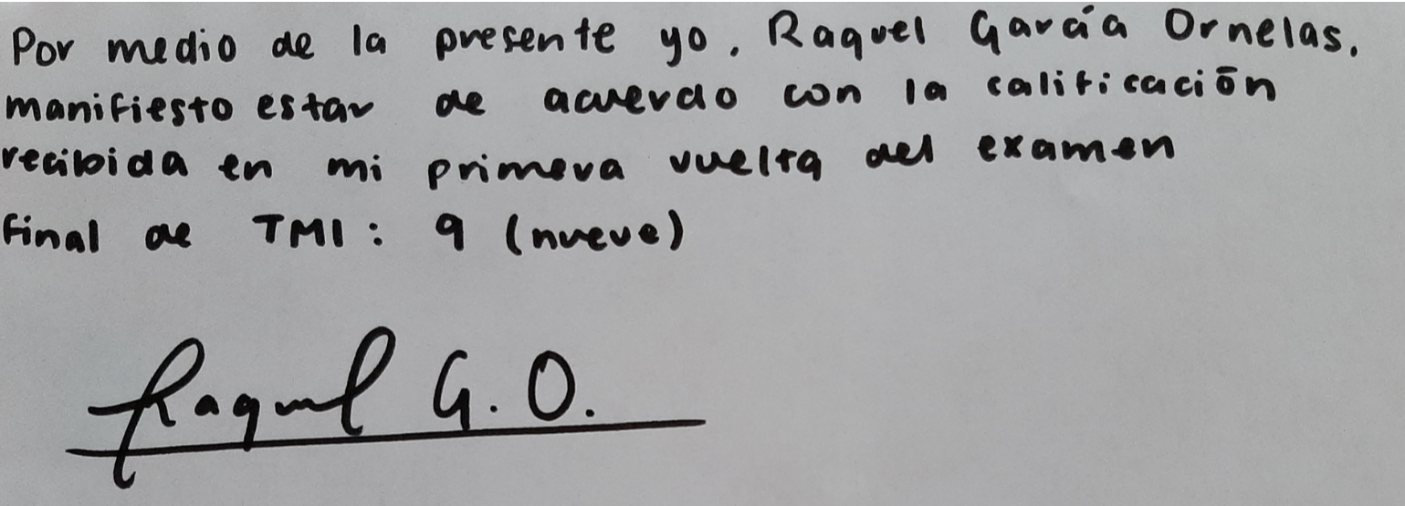 Por medio de la presente yo, Raquel García Ornelas,
manifiesto estar de acuerdo con la calificación
recibida en mi primera vuelta del examen
final de TMI: 9 (nueve)
Raquel G.O.